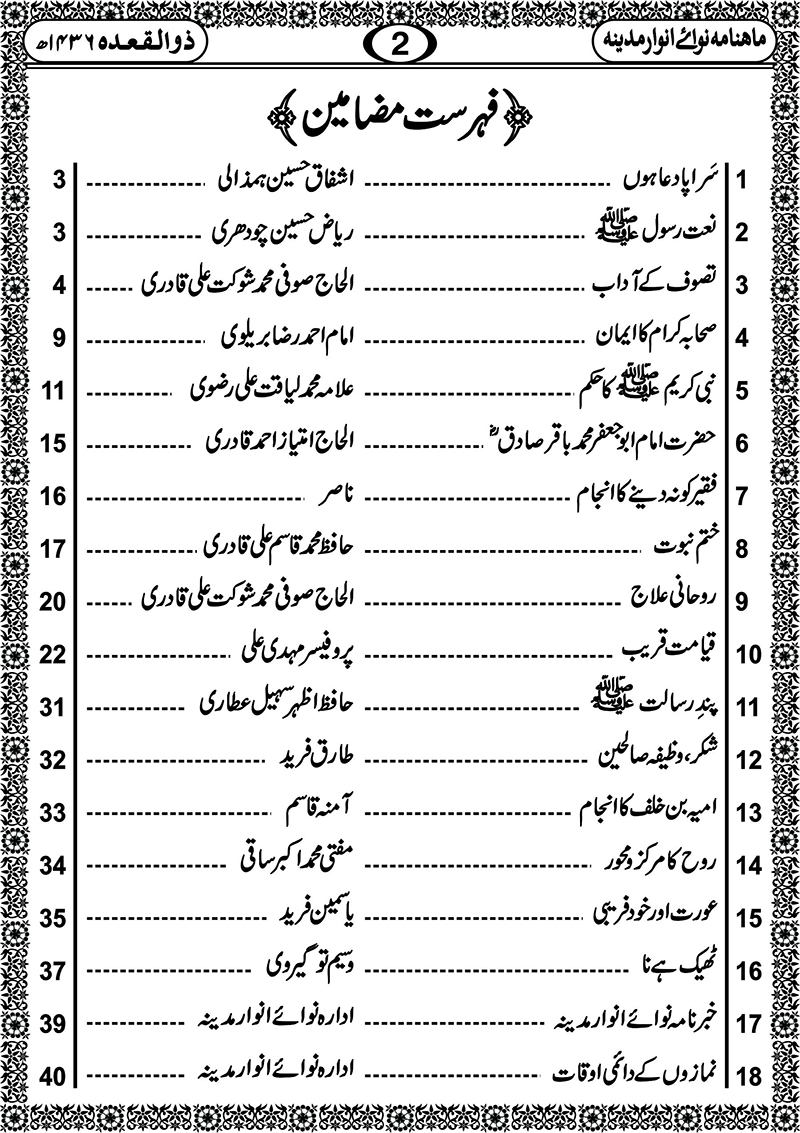 ماهنامه نوائے انوار مدینه 2 ذوالقعده ۱۴۳۶ھ
فہرست مضامین
1 سَراپا دعا ہوں ---------- اشفاق حسین ہمذالی ---------- 3
2 نعت رسول ﷺ ---------- ریاض حسین چودھری ---------- 3
3 تصوف کے آداب ---------- الحاج صوفی محمد شوکت علی قادری ---------- 4
4 صحابہ کرام کا ایمان ---------- امام احمد رضا بریلوی ---------- 9
5 نبی کریم ﷺ کا حکم ---------- علامہ محمد لیاقت علی رضوی ---------- 11
6 حضرت امام ابو جعفر محمد باقر صادقؓ ---------- الحاج امتیاز احمد قادری ---------- 15
7 فقیر کو نہ دینے کا انجام ---------- ناصر ---------- 16
8 ختم نبوت ---------- حافظ محمد قاسم علی قادری ---------- 17
9 روحانی علاج ---------- الحاج صوفی محمد شوکت علی قادری ---------- 20
10 قیامت قریب ---------- پروفیسر مہدی علی ---------- 22
11 پندِ رسالت ﷺ ---------- حافظ اظہر سہیل عطاری ---------- 31
12 شکر، وظیفہ صالحین ---------- طارق فرید ---------- 32
13 امیہ بن خلف کا انجام ---------- آمنہ قاسم ---------- 33
14 روح کا مرکز و محور ---------- مفتی محمد اکبر ساقی ---------- 34
15 عورت اور خود فریبی ---------- یاسمین فرید ---------- 35
16 ٹھیک ہے نا ---------- وسیم توگیروی ---------- 37
17 خبرنامہ نوائے انوار مدینہ ---------- ادارہ نوائے انوار مدینہ ---------- 39
18 نمازوں کے دائمی اوقات ---------- ادارہ نوائے انوار مدینہ ---------- 40